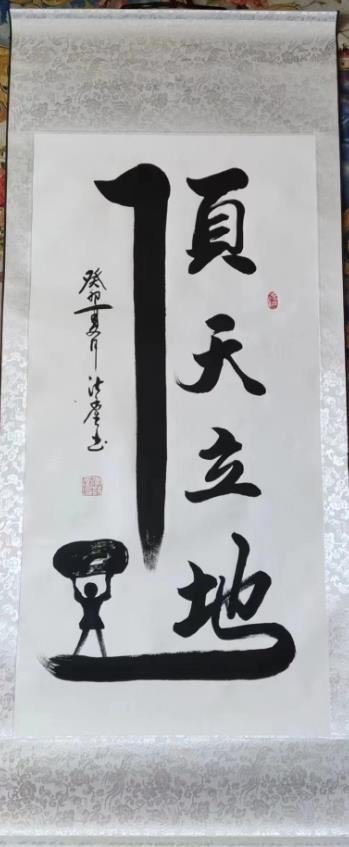 頂天立地
癸卯夏月
書